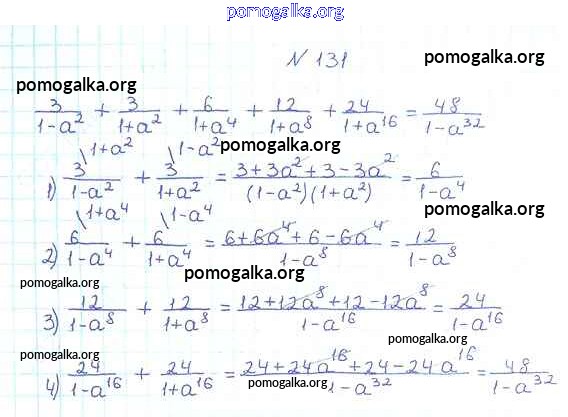 pomogalka.org
N 131
pomogalka.org
pomogalka.org
3/(1-a²) + 3/(1+a²) + 6/(1+a⁴) + 12/(1+a⁸) + 24/(1+a¹⁶) = 48/(1-a³²)
pomogalka.org
1) 3\1+a²/(1-a²) + 3\1-a²/(1+a²) = (3+3a²+3-3a²)/((1-a²)(1+a²)) = 6/(1-a⁴)
pomogalka.org
2) 6\1+a⁴/(1-a⁴) + 6\1-a⁴/(1+a⁴) = (6+6a⁴+6-6a⁴)/(1-a⁸) = 12/(1-a⁸)
pomogalka.org
3) 12/(1-a⁸) + 12/(1+a⁸) = (12+12a⁸+12-12a⁸)/(1-a¹⁶) = 24/(1-a¹⁶)
pomogalka.org
pomogalka.org
4) 24/(1-a¹⁶) + 24/(1+a¹⁶) = (24+24a¹⁶+24-24a¹⁶)/(1-a³²) = 48/(1-a³²)
pomogalka.org
pomogalka.org